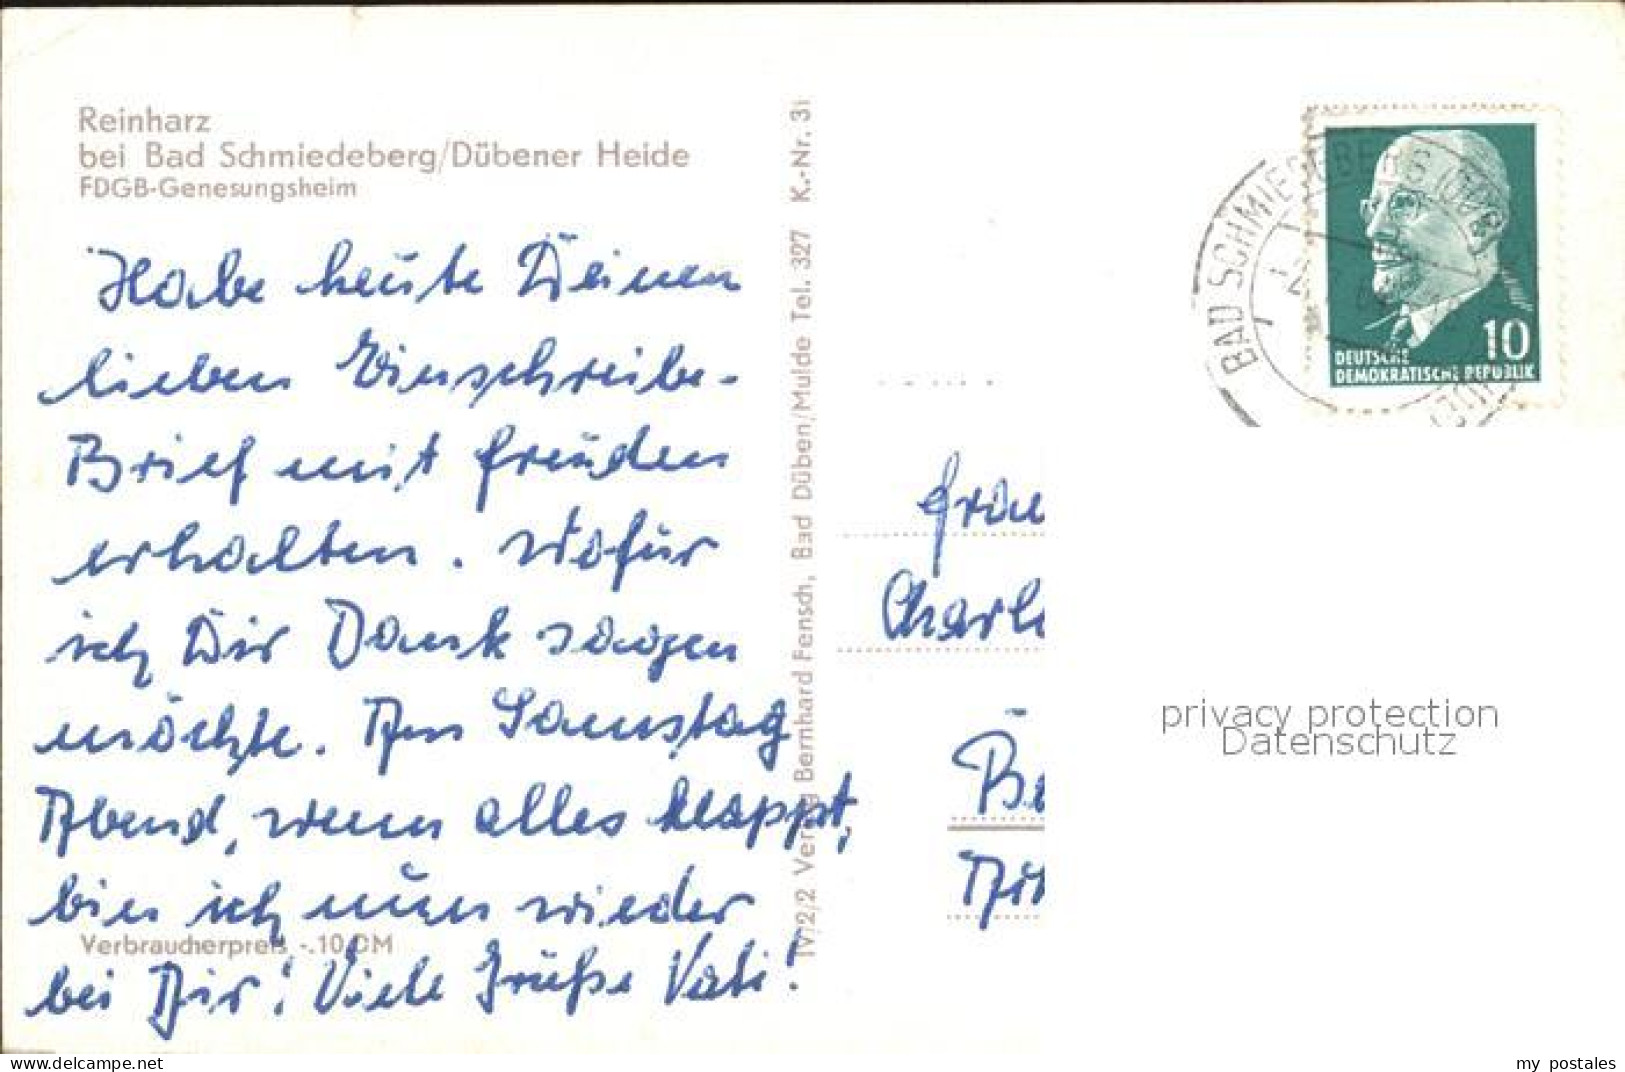 Reinharz
bei Bad Schmiedeberg/Dübener Heide
FDGB-Genesungsheim
Habe heute Deinen
lieben Einschreibe-
Brief mit freuden
erhalten. Wofür
ich Dir Dank sagen
möchte. Am Samstag
Abend, wenn alles klappt,
bin ich nun wieder
bei Dir! Viele Grüße Vati!
Verbraucherpreis -.10 DM
IV/2/2 Verlag Bernhard Fensch, Bad Düben/Mulde Tel. 327 K.-Nr. 31
BAD SCHMIEDEBERG
10
DEUTSCHE
DEMOKRATISCHE REPUBLIK
Frau
Charl
privacy protection
Datenschutz
my postales